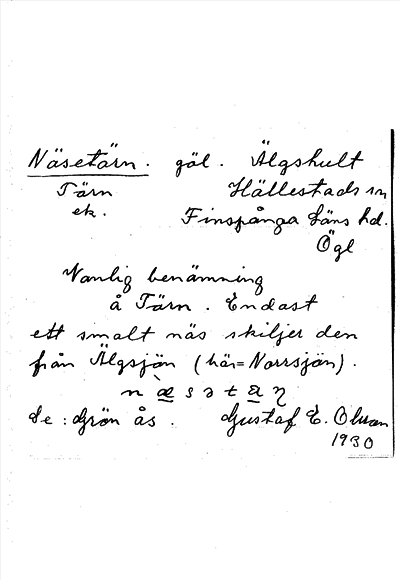 Näsetärn. gäl. Älgshult
Tärn Hällestads sn
ek. Finspånga läns hd.
Ögl
Vanlig benämning
å Tärn. Endast
ett smalt näs skiljer den
från Älgsjön (här=Norrsjön).
Se: Grön ås. Gustaf E. Olsson
1930